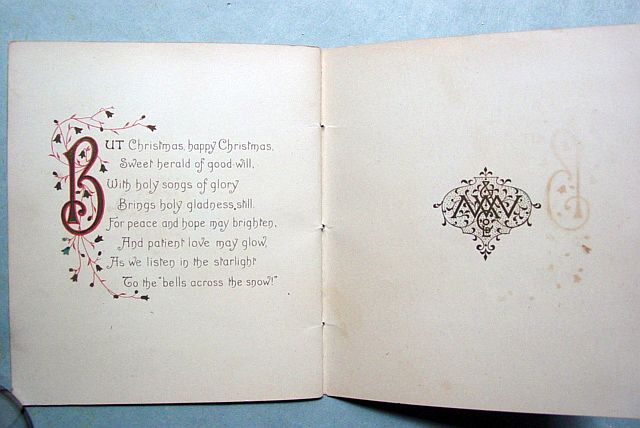 BUT Christmas, happy Christmas,
Sweet herald of good-will,
With holy songs of glory
Brings holy gladness still.
For peace and hope may brighten,
And patient love may glow,
As we listen in the starlight
To the "bells across the snow!"